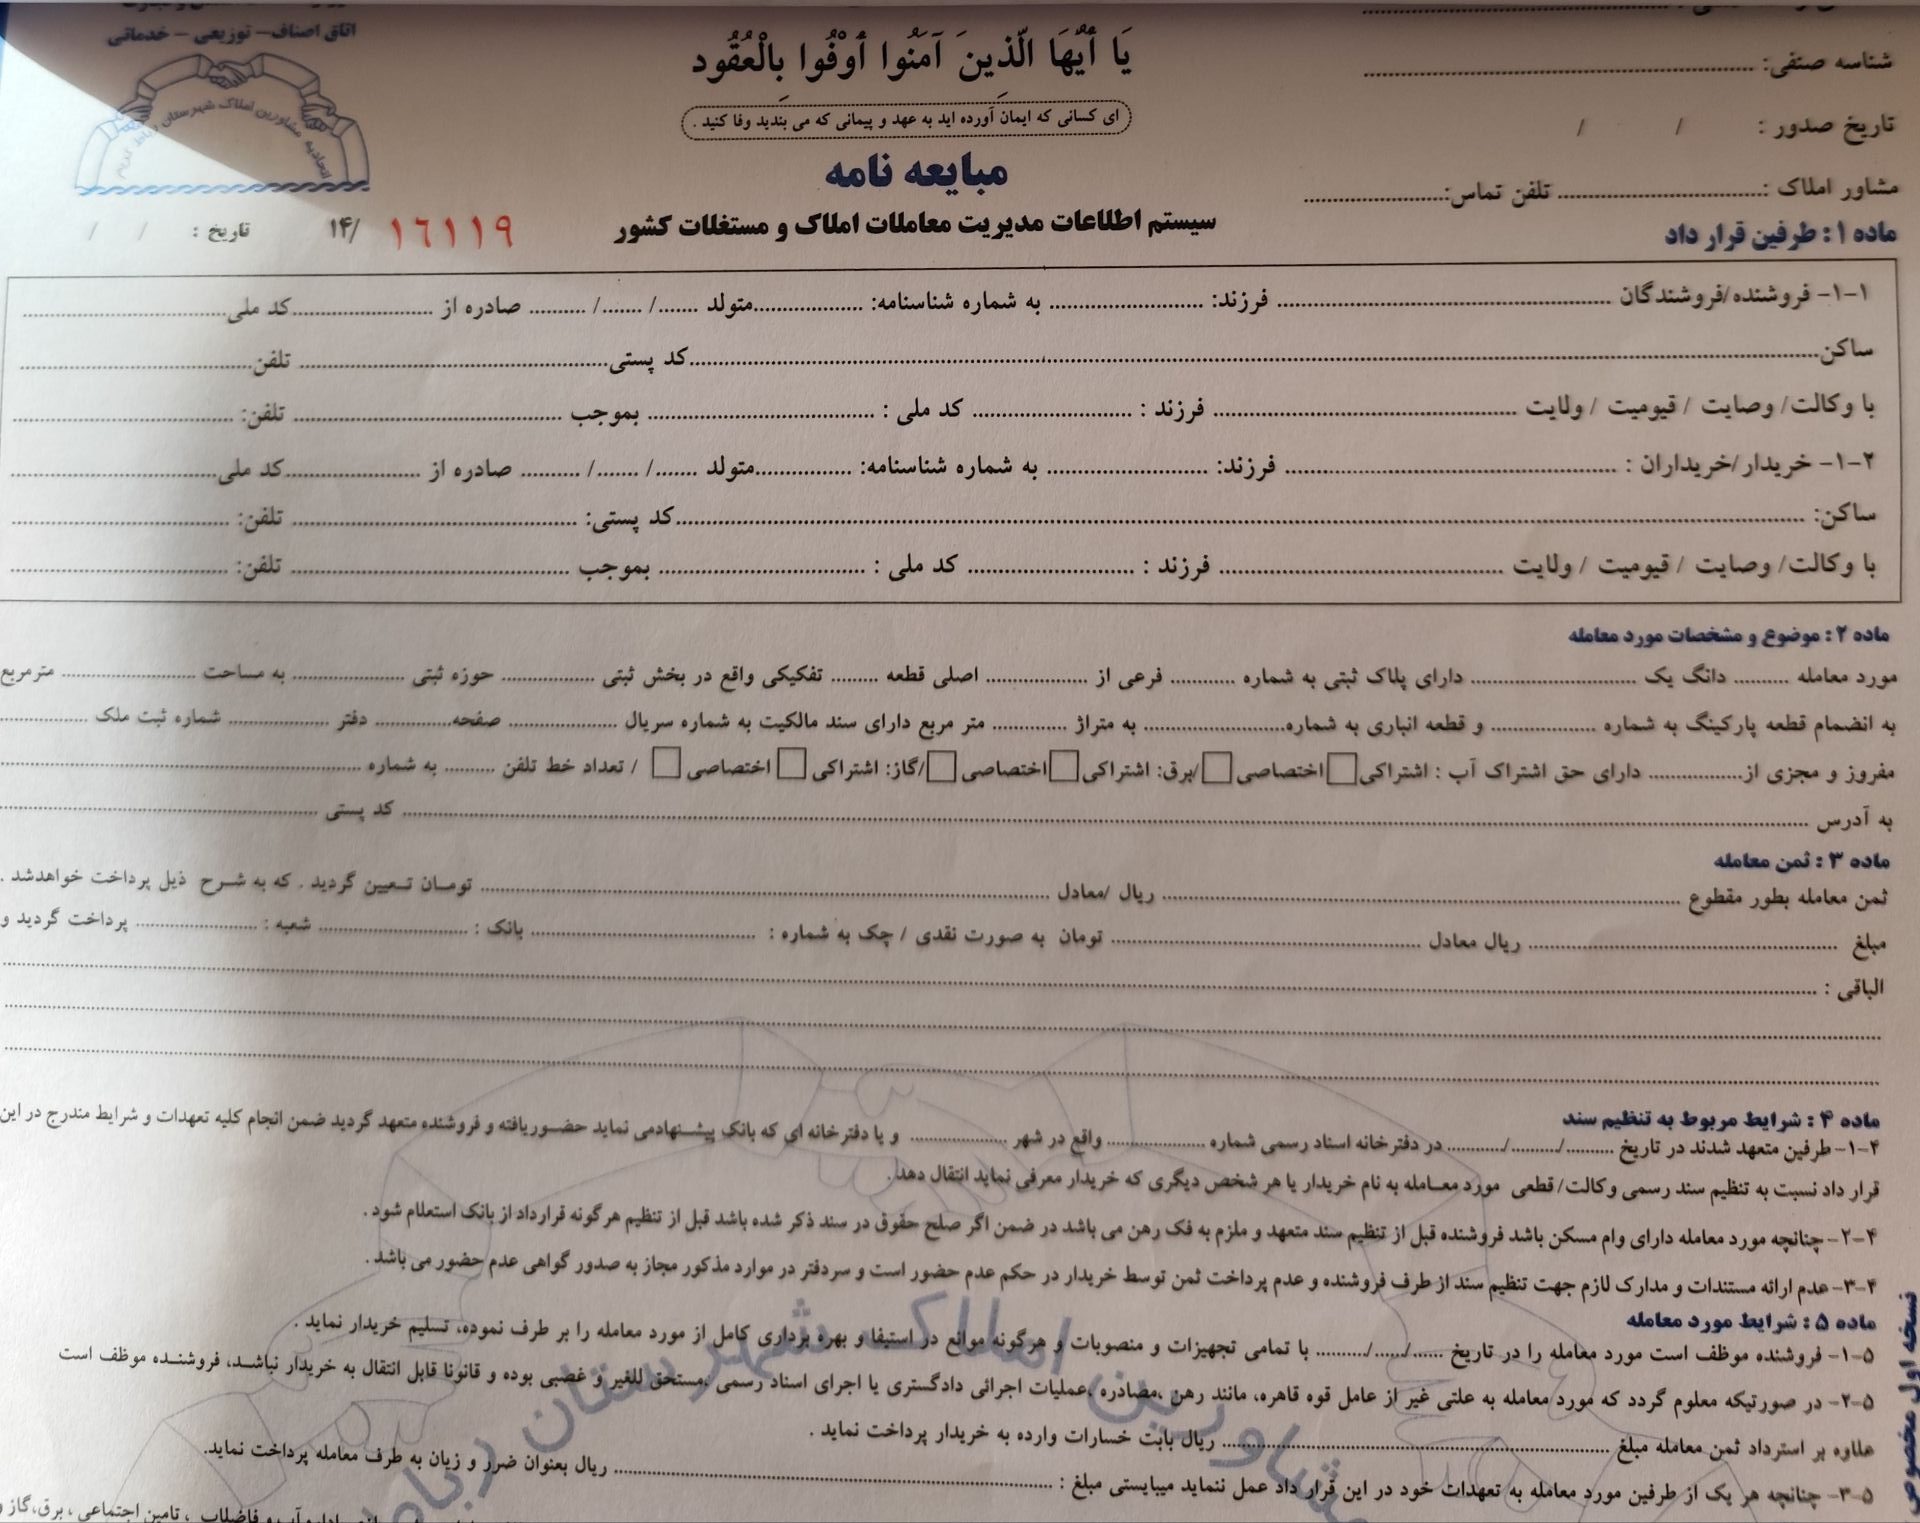 اتاق اصناف- توزیعی - خدماتی
اتحادیه مشاورین املاک شهرستان رباط کریم
یَا أَیُّهَا الَّذِینَ آمَنُوا أَوْفُوا بِالْعُقُود
ای کسانی که ایمان آورده اید به عهد و پیمانی که می بندید وفا کنید .
مبایعه نامه
سیستم اطلاعات مدیریت معاملات املاک و مستغلات کشور
شناسه صنفی: ..........
تاریخ صدور : / /
مشاور املاک :.......... تلفن تماس:..........
۱۴/ ۱۶۱۱۹
تاریخ : / /
ماده ۱ : طرفین قرار داد
۱-۱- فروشنده/فروشندگان .......... فرزند: .......... به شماره شناسنامه: ..........متولد ......./ ......./ .......... صادره از ..........کد ملی..........
ساکن..........کد پستی.......... تلفن..........
با وکالت/ وصایت / قیومیت / ولایت .......... فرزند : .......... کد ملی : .......... بموجب .......... تلفن: ..........
۱-۲- خریدار/خریداران : .......... فرزند: .......... به شماره شناسنامه: ..........متولد ......./ ......./ .......... صادره از ..........کد ملی..........
ساکن: ..........کد پستی: .......... تلفن: ..........
با وکالت/ وصایت / قیومیت / ولایت .......... فرزند : .......... کد ملی : .......... بموجب .......... تلفن: ..........
ماده ۲ : موضوع و مشخصات مورد معامله
مورد معامله .......... دانگ یک .......... دارای پلاک ثبتی به شماره .......... فرعی از .......... اصلی قطعه ........ تفکیکی واقع در بخش ثبتی .......... حوزه ثبتی .......... به مساحت .......... مترمربع
به انضمام قطعه پارکینگ به شماره .......... و قطعه انباری به شماره.......... به متراژ .......... متر مربع دارای سند مالکیت به شماره سریال .......... صفحه.......... دفتر .......... شماره ثبت ملک ..........
مفروز و مجزی از.......... دارای حق اشتراک آب : اشتراکی □ اختصاصی □ /برق: اشتراکی □ اختصاصی □ /گاز: اشتراکی □ اختصاصی □ / تعداد خط تلفن ......... به شماره ..........
به آدرس .......... کد پستی ..........
ماده ۳ : ثمن معامله
ثمن معامله بطور مقطوع .......... ریال /معادل .......... تومان تعیین گردید . که به شرح ذیل پرداخت خواهدشد .
مبلغ .......... ریال معادل .......... تومان به صورت نقدی / چک به شماره : .......... بانک : .......... شعبه : .......... پرداخت گردید و
الباقی : ..........
ماده ۴ : شرایط مربوط به تنظیم سند
۴-۱- طرفین متعهد شدند در تاریخ ........../........../.......... در دفترخانه اسناد رسمی شماره .......... واقع در شهر .......... و یا دفترخانه ای که بانک پیشنهادمی نماید حضوریافته و فروشنده متعهد گردید ضمن انجام کلیه تعهدات و شرایط مندرج در این
قرار داد نسبت به تنظیم سند رسمی وکالت/ قطعی مورد معامله به نام خریدار یا هر شخص دیگری که خریدار معرفی نماید انتقال دهد .
۴-۲- چنانچه مورد معامله دارای وام مسکن باشد فروشنده قبل از تنظیم سند متعهد و ملزم به فک رهن می باشد در ضمن اگر صلح حقوق در سند ذکر شده باشد قبل از تنظیم هرگونه قرارداد از بانک استعلام شود .
۴-۳- عدم ارائه مستندات و مدارک لازم جهت تنظیم سند از طرف فروشنده و عدم پرداخت ثمن توسط خریدار در حکم عدم حضور است و سردفتر در موارد مذکور مجاز به صدور گواهی عدم حضور می باشد .
ماده ۵ : شرایط مورد معامله
۵-۱- فروشنده موظف است مورد معامله را در تاریخ ....../....../.......... با تمامی تجهیزات و منصوبات و هرگونه موانع در استیفا و بهره برداری کامل از مورد معامله را بر طرف نموده، تسلیم خریدار نماید .
۵-۲- در صورتیکه معلوم گردد که مورد معامله به علتی غیر از عامل قوه قاهره، مانند رهن ،مصادره ،عملیات اجرائی دادگستری یا اجرای اسناد رسمی ،مستحق للغیر و غصبی بوده و قانونا قابل انتقال به خریدار نباشد، فروشنده موظف است
علاوه بر استرداد ثمن معامله مبلغ .......... ریال بابت خسارات وارده به خریدار پرداخت نماید .
۵-۳- چنانچه هر یک از طرفین مورد معامله به تعهدات خود در این قرار داد عمل ننماید میبایستی مبلغ : .......... ریال بعنوان ضرر و زیان به طرف معامله پرداخت نماید.
آب و فاضلاب ، تامین اجتماعی ، برق،گاز و
نسخه اول مخصوص
مشاورین املاک شهرستان رباط